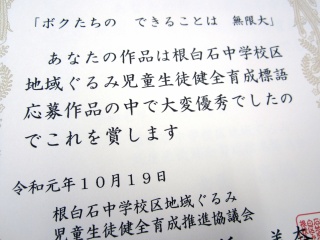 「ボクたちの　できることは　無限大」
あなたの作品は根白石中学校区
地域ぐるみ児童生徒健全育成標語
応募作品の中で大変優秀でしたの
でこれを賞します
令和元年１０月１９日
根白石中学校区地域ぐるみ
児童生徒健全育成推進協議会